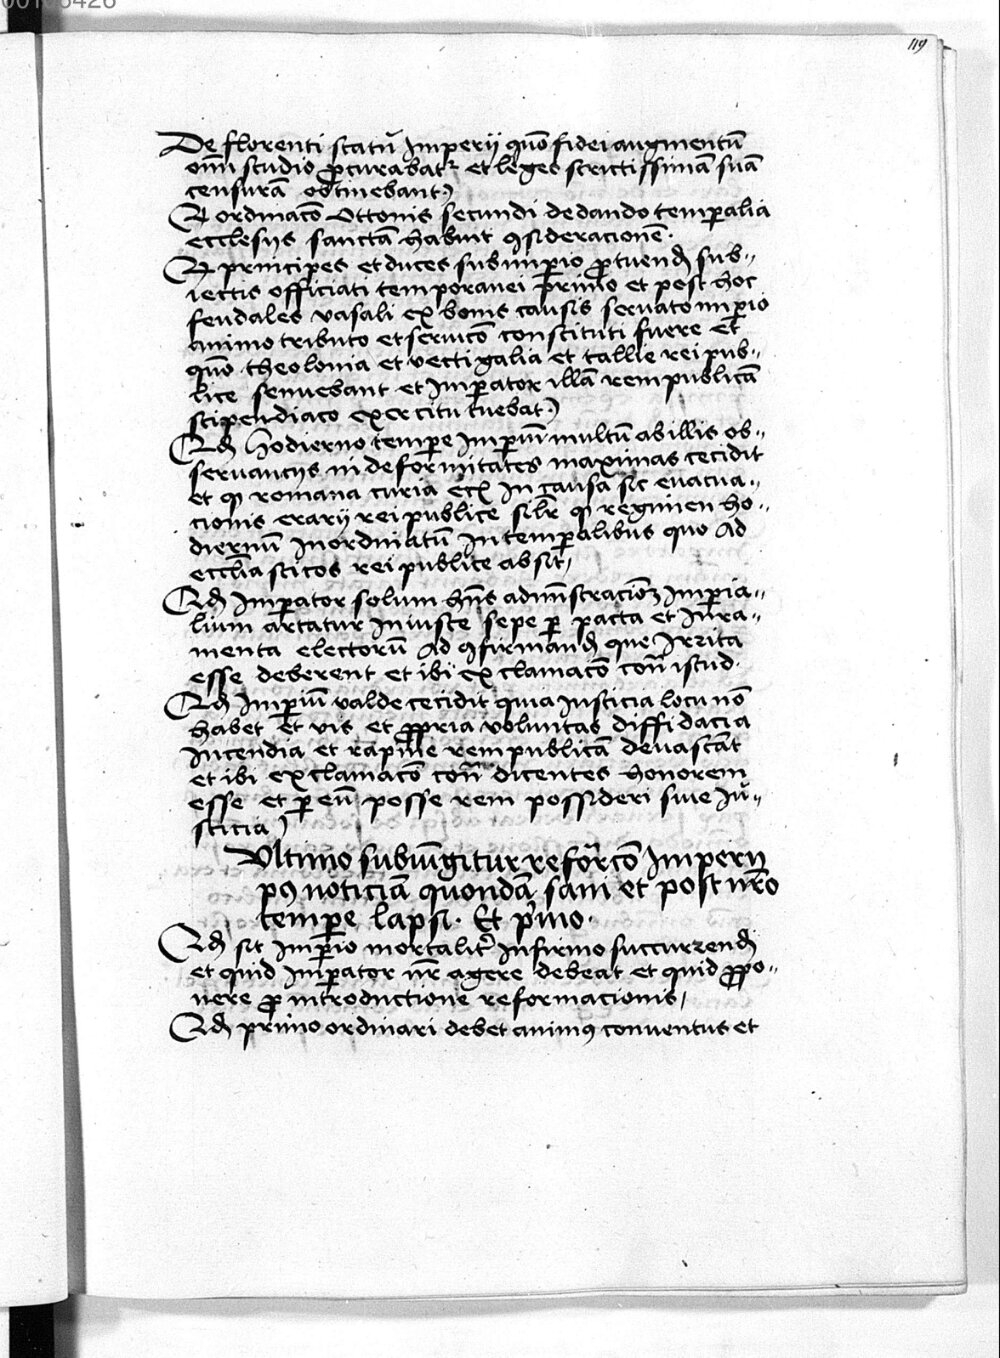 00106426
119
De florenti statu Imperij quō fidei augmentū
om̄i studio ꝓcurabatr et leges strictissimam suā
censurā obtinebant
Qꝫ ordinacō Ottonis secundi de dando temꝑalia
ecclesijs sanctā habuit ꝯsideracionē·
Qꝫ principes et duces sub imꝑio ꝓ tuendꝭ sub-
iectis officiati temporanei primo et post hoc
feudales vasali ex bonis causis seruato imꝑio
animo tributo et seruicō constituti fuere et
quō theolonia et vectigalia et tallie rei pub-
lice seruebant et Imꝑator illā rempublicā
stipendiaco exercitu tuebat
Qđ Hodierno tempe Imꝑiū multū ab illis ob-
seruancijs in deformitates maximas cecidit
et qꝫ romana curia etꝫ in causa sit euacua-
cionis erarij rei publice silr qꝫ regimen ho-
diernū Inordinatū In temꝑalibus quo ad
eccl̄iasticos rei publice absit,
Qđ Imꝑator solum hn̄s admīstracionꝫ Imꝑia-
lium artatur Iniuste sepe ꝑ pacta et Iura-
menta electorū ad ꝯfirmandꝭ que Irrita
esse deberent et ibi exclamacō conͣ istud·
Qđ Imꝑiū valde cecidit quia Iusticia locū nō
habet et vis et ꝓpria voluntas diffidacia
Incendia et rapine rempublicā deuastāt
et ibi exclamacō conͣ dicentes honorem
esse et ꝑ eū posse rem possideri siue Iu-
sticia
Vltimo subiūgitur reformacō Imperij
pꝰ noticiā quondā sani et post nr̄o
tempe lapsi· Et pͥmo·
Qđ sit Imꝑio mortalit̉ Infirmo succurrendꝭ
et quid Imꝑator nr̄ agere debeat et quid ꝓpo-
nere ꝓ introductione reformacionis,
Qđ primo ordinari debet animꝰ conuentus et